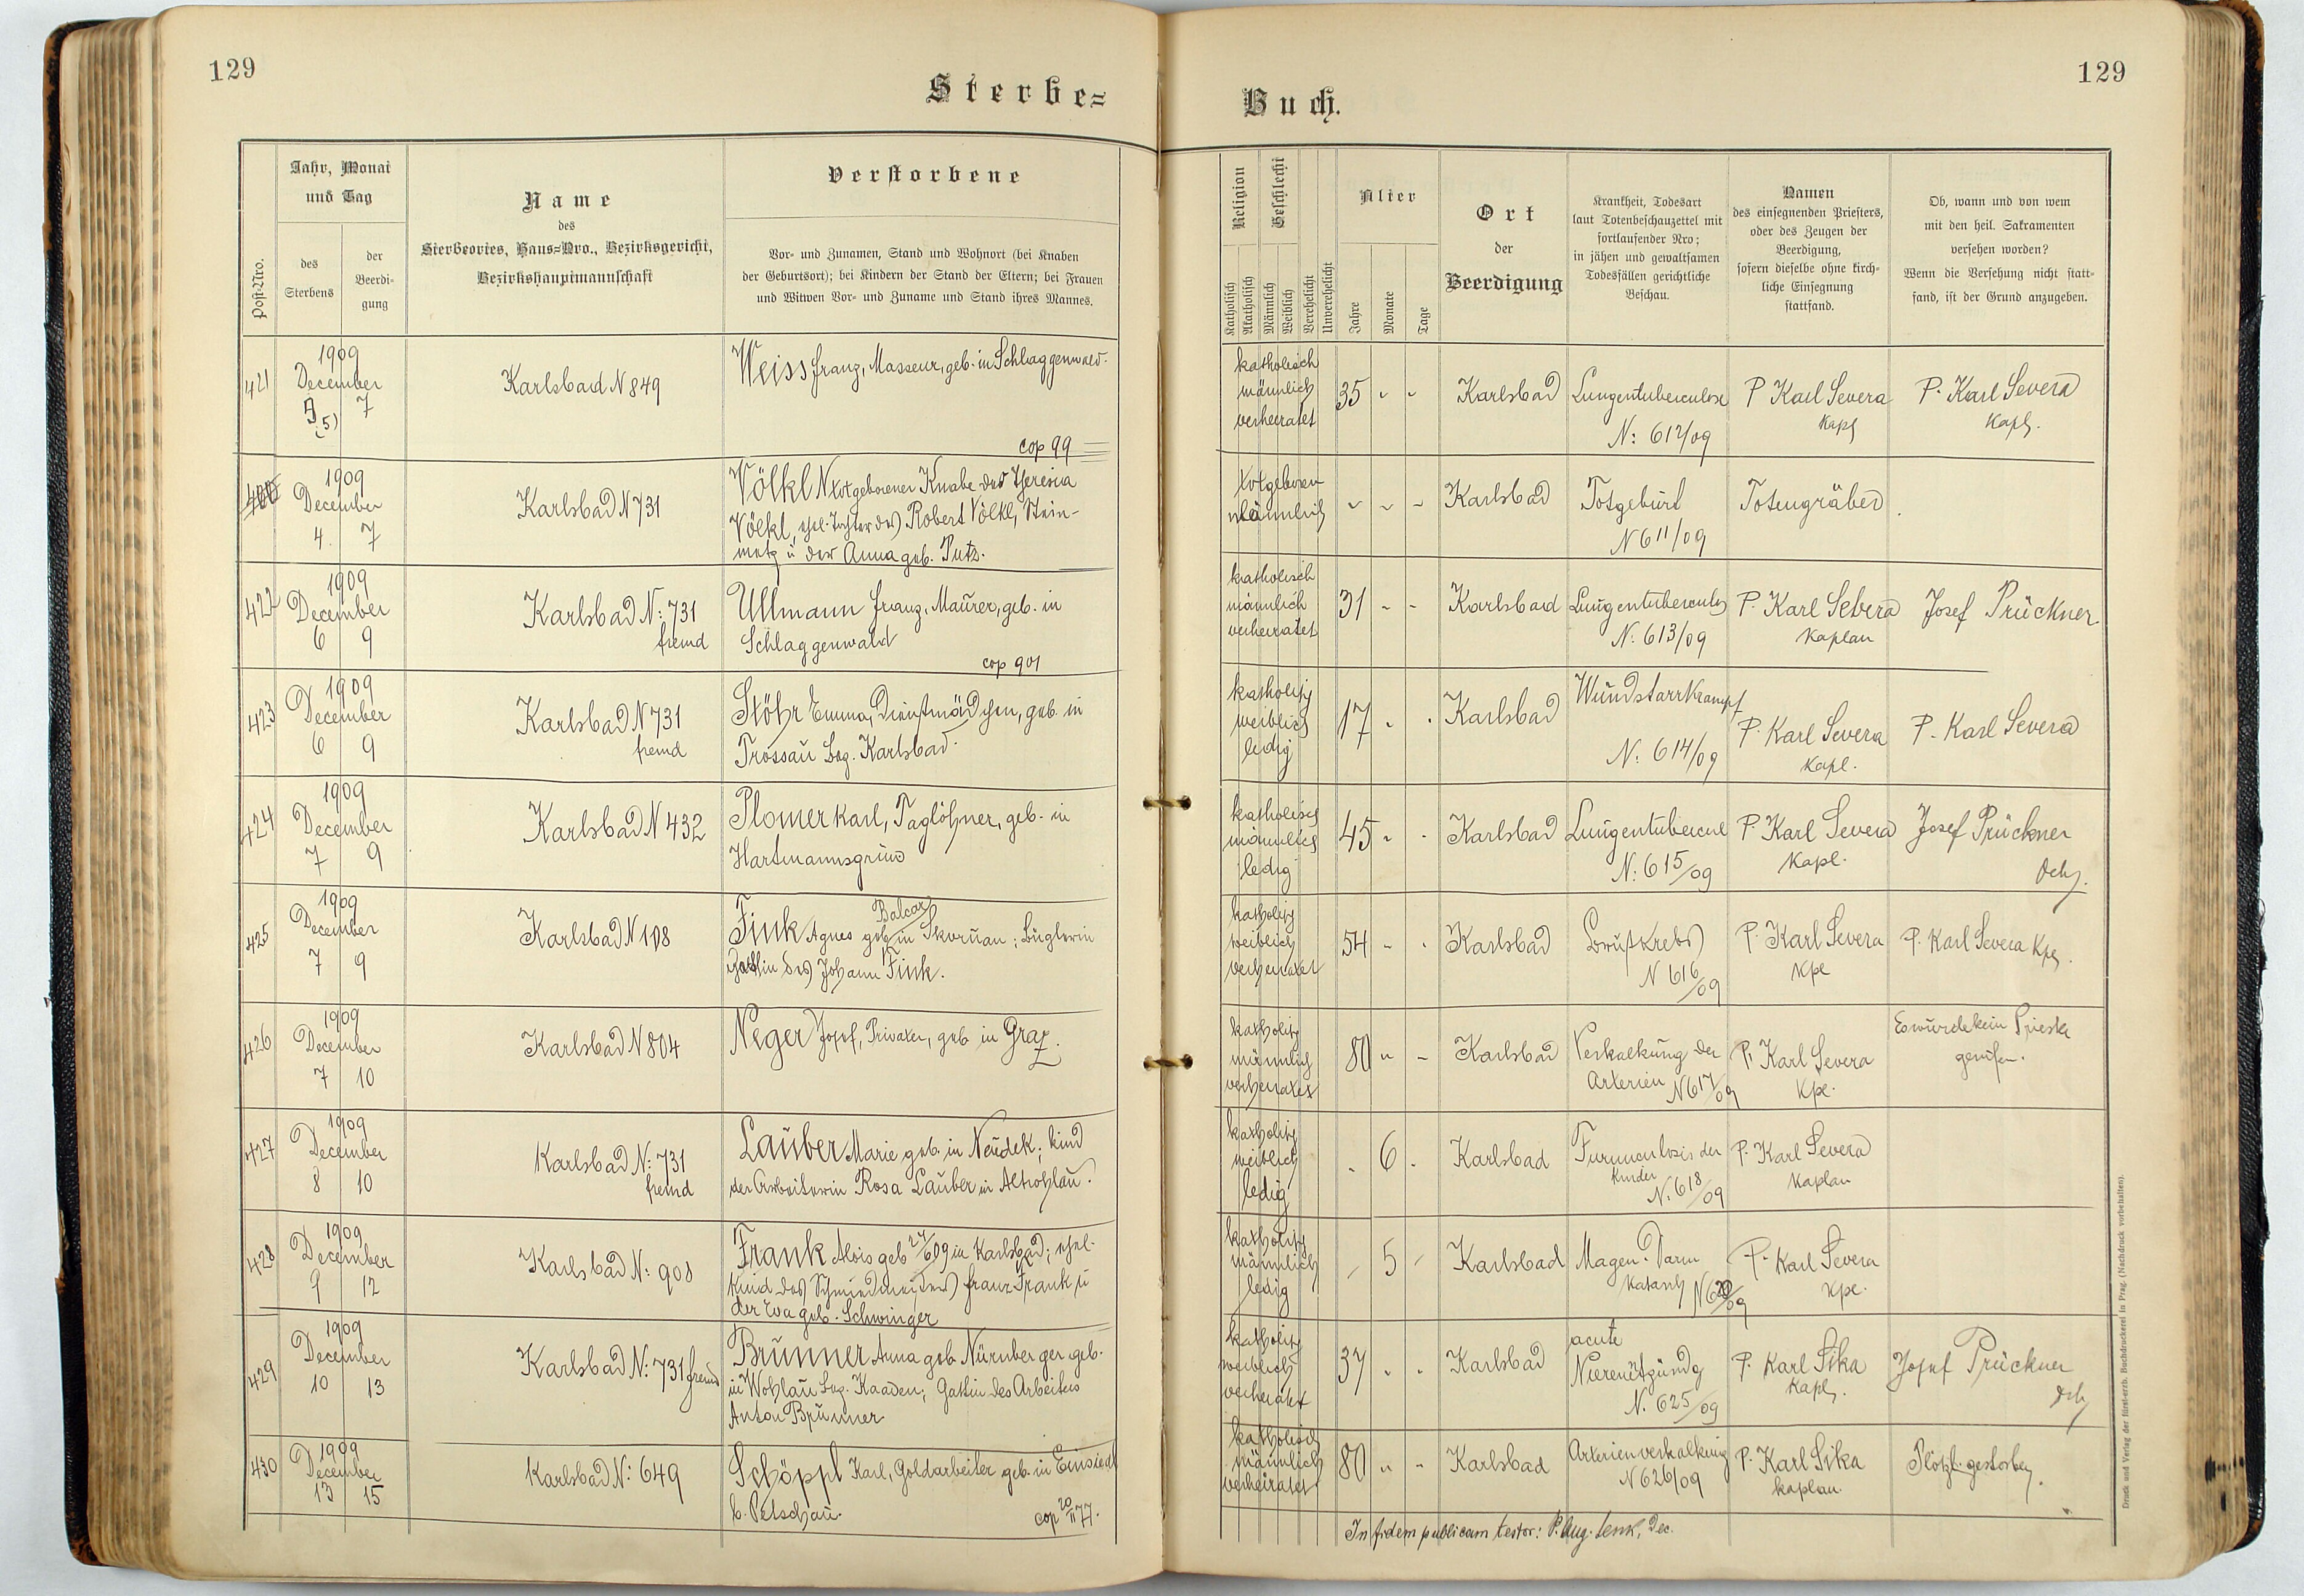 129
129
Sterbe=
Buch.
Post-Nro.
Jahr, Monat
und Tag
des
Sterbens
der
Beerdi-
gung
Name
des
Sterbeortes, Haus=Nro., Bezirksgericht,
Bezirkshauptmannschaft
Verstorbene
Vor- und Zunamen, Stand und Wohnort (bei Knaben
der Geburtsort); bei Kindern der Stand der Eltern; bei Frauen
und Witwen Vor- und Zuname und Stand ihres Mannes.
Religion
Geschlecht
Katholisch
Akatholisch
Männlich
Weiblich
Verehelicht
Unverehelicht
Alter
Jahre
Monate
Tage
Ort
der
Beerdigung
Krankheit, Todesart
laut Totenbeschauzettel mit
fortlaufender Nro;
in jähen und gewaltsamen
Todesfällen gerichtliche
Beschau.
Namen
des einsegnenden Priesters,
oder des Zeugen der
Beerdigung,
sofern dieselbe ohne kirch-
liche Einsegnung
stattfand.
Ob, wann und von wem
mit den heil. Sakramenten
versehen worden?
Wenn die Versehung nicht statt-
fand, ist der Grund anzugeben.
421
1909
December
(5) 7
Karlsbad N 849
Weiss Franz, Masseur, geb. in Schlaggenwald.
cop 99
katholisch
männlich
verheiratet
35
Karlsbad
Lungentuberculose
N: 612/09
P Karl Severa
Kapl
P. Karl Severa
Kapl.
1909
December
4. 7
Karlsbad N 731
Völkl N totgeborener Knabe der Theresia
Völkl, ehel. Tochter des Robert Völkl, Stein-
metz u der Anna geb. Putz.
totgeboren
männlich
Karlsbad
Totgeburt
N 611/09
Totengräber
422
1909
December
6 9
Karlsbad N: 731
fremd
Ullmann Franz, Maurer, geb. in
Schlaggenwald
cop 901
katholisch
männlich
verheiratet
31
Karlsbad
Lungentuberculos
N: 613/09
P. Karl Severa
Kaplan
Josef Prückner
423
1909
December
6 9
Karlsbad N 731
fremd
Stöhr Emma, Dienstmädchen, geb. in
Trossau Bez. Karlsbad.
katholisch
weiblich
ledig
17
Karlsbad
Wundstarrkrampf
N: 614/09
P. Karl Severa
Kapl.
P. Karl Severa
424
1909
December
7 9
Karlsbad N 432
Plomer Karl, Taglöhner, geb. in
Hartmannsgrün
katholisch
männlich
ledig
45
Karlsbad
Lungentubercul
N: 615/09
P. Karl Severa
Kapl.
Josef Prückner
Dch.
425
1909
December
7 9
Karlsbad N 108
Balcar
Fink Agnes geb in Skurnan; Büglerin
Gattin des Johann Fink.
katholisch
weiblich
verheiratet
54
Karlsbad
Brustkrebs
N 616/09
P. Karl Severa
Kpl
P. Karl Severa Kpl.
426
1909
December
7 10
Karlsbad N 804
Neger Josef, Privatier, geb in Graz.
katholisch
männlich
verheiratet
80
Karlsbad
Verkalkung der
Arterien N 617/09
P. Karl Severa
Kpl.
Es wurde kein Priester
gerufen.
427
1909
December
8 10
Karlsbad N: 731
fremd
Lauber Marie geb. in Neudek; Kind
der Arbeiterin Rosa Lauber in Altrohlau.
katholisch
weiblich
ledig
6
Karlsbad
Furunculosis der
Kinder
N: 618/09
P. Karl Severa
Kaplan
428
1909
December
9 12
Karlsbad N: 908
Frank Alois geb 24/6 09 in Karlsbad; ehel.
Kind des Schmiedmeisters Franz Frank u
der Eva geb. Schwinger
katholisch
männlich
ledig
5
Karlsbad
Magen. Darm
Katarrh N 620/09
P. Karl Severa
Kpl.
429
1909
December
10 13
Karlsbad N: 731 fremd
Brunner Anna geb Nürnberger geb.
in Wohlau Bez. Kaaden; Gattin des Arbeiters
Anton Brunner
katholisch
weiblich
verheiratet
37
Karlsbad
acute
Nierenentzündg
N. 625/09
P. Karl Sika
Kapl.
Josef Prückner
Dch
430
1909
December
13 15
Karlsbad N: 649
Schöppl Karl, Goldarbeiter geb. in Einsiedl
b. Petschau.
cop 20/II 77.
katholisch
männlich
verheiratet
80
Karlsbad
Arterienverkalkung
N 626/09
P. Karl Sika
kaplan.
Plötzl. gestorben.
In fidem publicam testor: P. Aug. Lenk, Dec.
Druck und Verlag der fürst-erzb. Buchdruckerei in Prag. (Nachdruck vorbehalten).